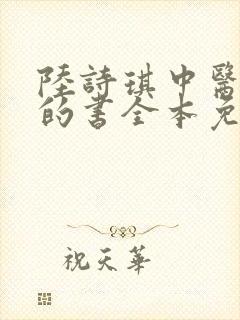 陸詩琪中醫
的書全本免
祝天華